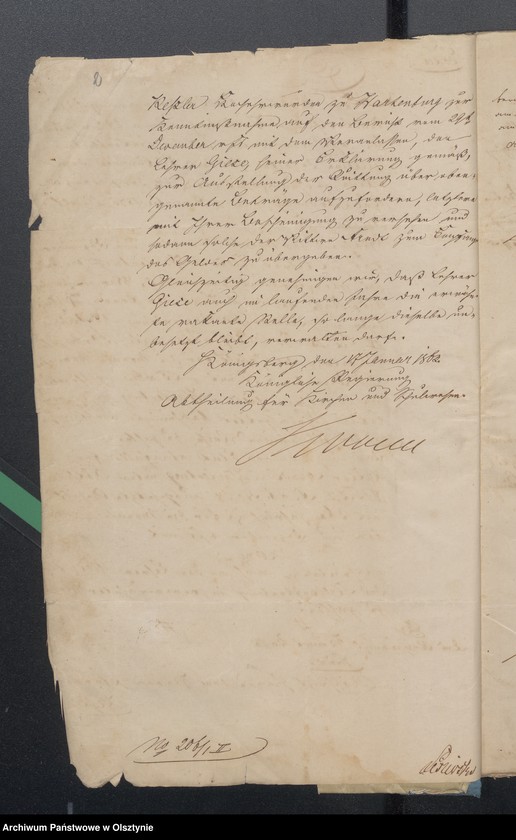 2
Hochehrwürden zu Wartenburg zur
Kenntnißnahme auf den Bericht vom
December pft. mit dem Veranlassen, den
Lehrer Giese, seiner Erklärung gemäß,
zur Ausstellung der Quittung über oben
genannte Beträge aufzufordern, letztere
mit Ihrer Bescheinigung zu versehen und
sodann solche der Wittwe zum Empfang
des Geldes zu übergeben.
Gleichzeitig genehmigen wir, daß Lehrer
Giese auch im laufenden Jahre die erwähn-
te vakante Stelle, so lange dieselbe un-
besetzt bleibt, verwalten darf.
Königsberg, den Januar 1862
Königliche Regierung
Abtheilung für Kirchen und Schulwesen.
No 206/1 II
Archiwum Państwowe w Olsztynie